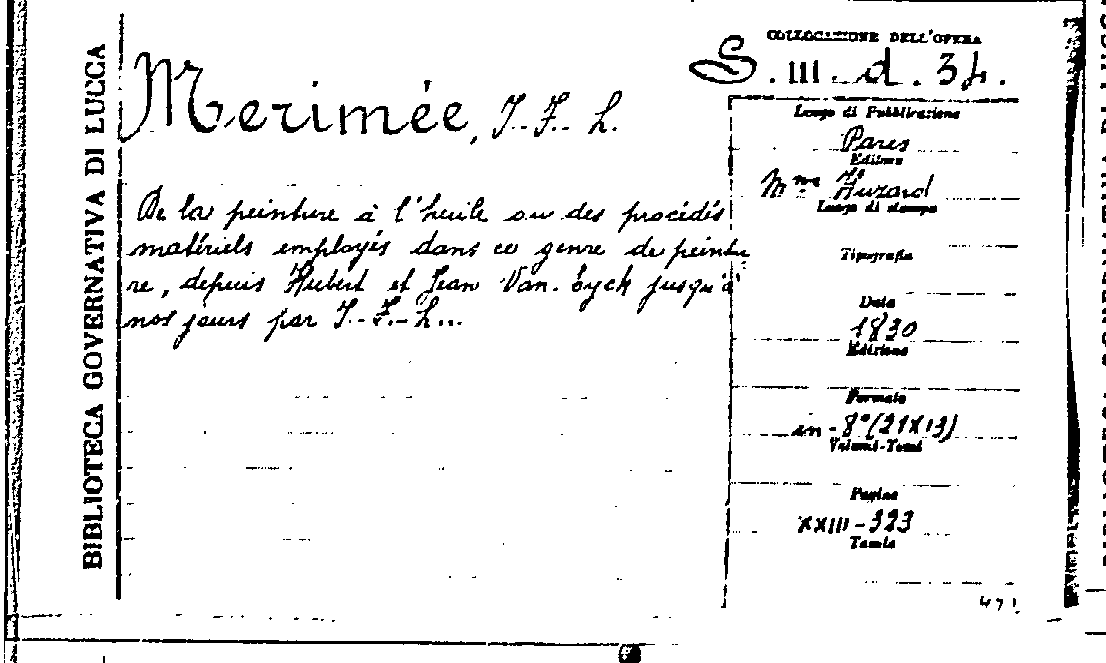 BIBLIOTECA GOVERNATIVA DI LUCCA
Merimée, J.-F.- L.
De la peinture à l'huile ou des procédés
matériels employés dans ce genre de peintu
re, depuis Hubert et Jean Van-Eyck jusqu'à
nos jours par J.-F.-L...
COLLOCAZIONE DELL'OPERA
S. III. d. 34.
Luogo di Pubblicazione
Paris
Editore
Mme Vº Huzard
Luogo di stampa
Tipografia
Data
1830
Edizione
Formato
in-8º (21X13)
Volumi-Tomi
Pagine
XXIII-323
Tavole
471